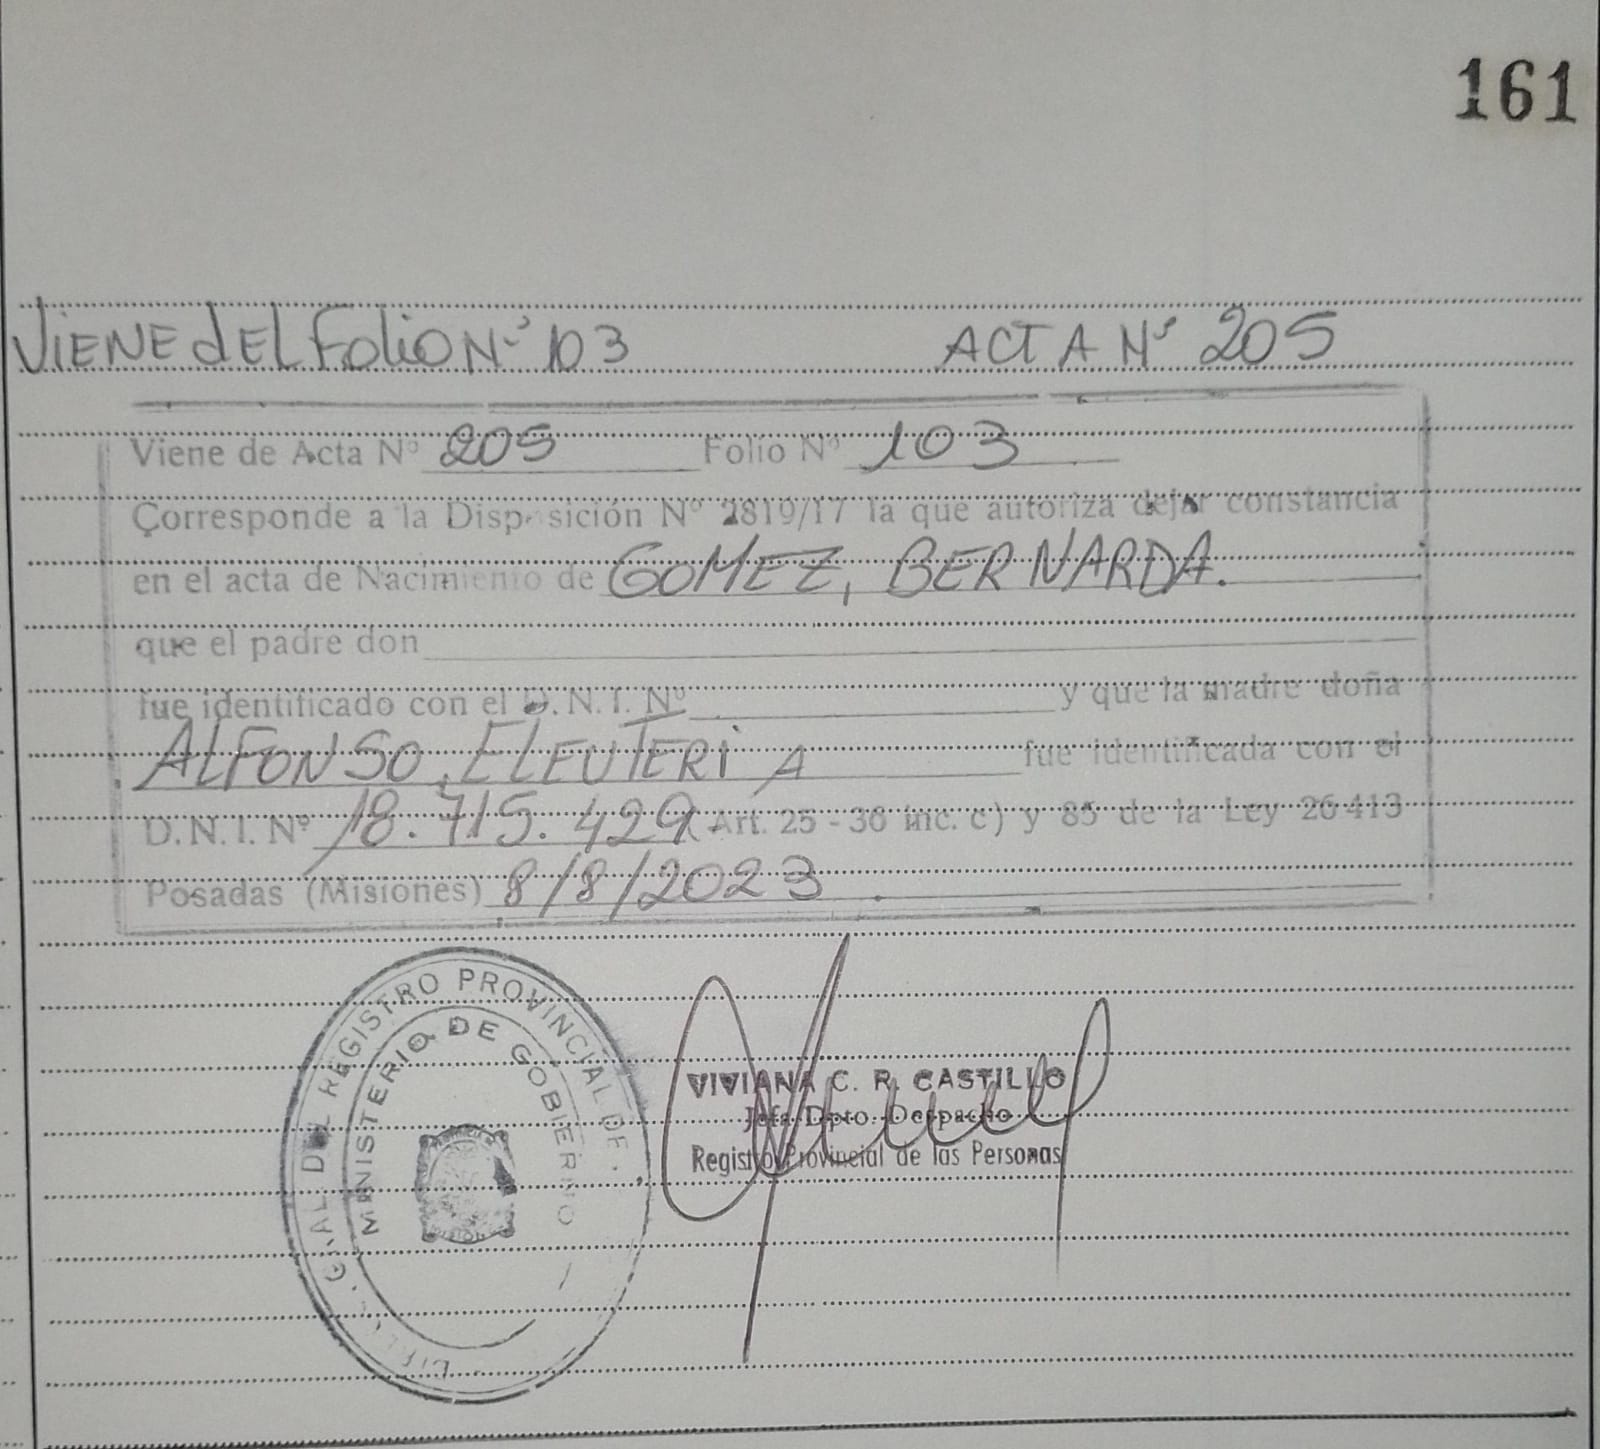 161
VIENE dEL FOLIO Nº 103 ACTA Nº 205
Viene de Acta Nº 205 Folio Nº 103
Corresponde a la Disposición Nº 2819/17 la que autoriza dejar constancia
en el acta de Nacimiento de GOMEZ, BERNARDA.
que el padre don
fue identificado con el D.N.I. Nº y que la madre doña
ALFONSO, ELEUTERIA fue identificada con el
D.N.I. Nº 18.715.429 (Art. 25 - 36 inc. c) y 85 de la Ley 26413
Posadas (Misiones) 8/8/2023
GRAL DEL REGISTRO PROVINCIAL DE
MINISTERIO DE GOBIERNO
VIVIANA C. R. CASTILLO
Jefa Dpto. Despacho
Registro Provincial de las Personas